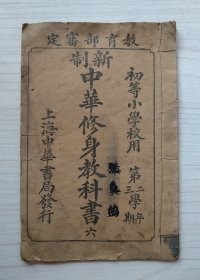 教育部審定
初等小學校用
第二學年
第三學期
新制
中華修身教科書 六
上海中華書局發行